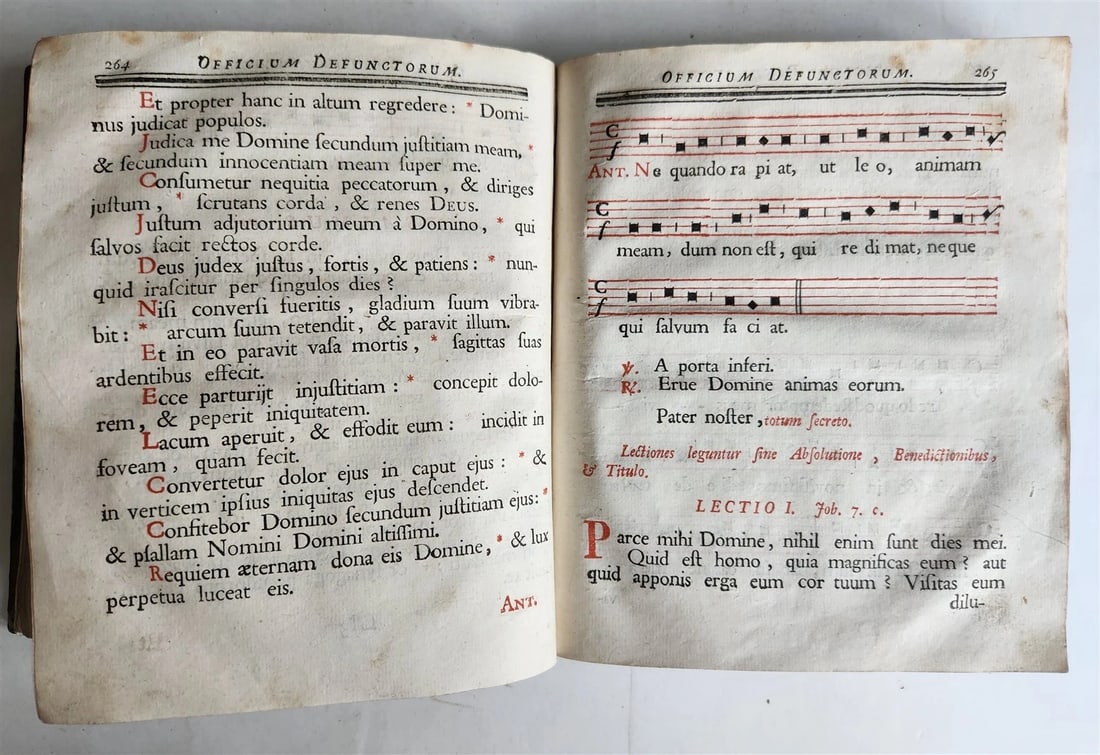 264 OFFICIUM DEFUNCTORUM.
Et propter hanc in altum regredere : * Domi-
nus judicat populos.
Judica me Domine ſecundum juſtitiam meam, *
& ſecundum innocentiam meam ſuper me.
Conſumetur nequitia peccatorum , & diriges
juſtum , * ſcrutans corda , & renes DEUS.
Juſtum adjutorium meum à Domino, * qui
ſalvos facit rectos corde.
Deus judex juſtus , fortis , & patiens : * nun-
quid iraſcitur per ſingulos dies ?
Niſi converſi fueritis , gladium ſuum vibra-
bit : * arcum ſuum tetendit , & paravit illum.
Et in eo paravit vaſa mortis , * ſagittas ſuas
ardentibus effecit.
Ecce parturijt injuſtitiam : * concepit dolo-
rem, & peperit iniquitatem.
Lacum aperuit, & effodit eum : incidit in
foveam , quam fecit.
Convertetur dolor ejus in caput ejus : * &
in verticem ipſius iniquitas ejus deſcendet.
Confitebor Domino ſecundum juſtitiam ejus: *
& pſallam Nomini Domini altiſſimi.
Requiem æternam dona eis Domine, * & lux
perpetua luceat eis.
ANT.
OFFICIUM DEFUNCTORUM. 265
ANT. Ne quando ra pi at, ut le o, animam
meam, dum non eſt, qui re di mat, ne que
qui ſalvum fa ci at.
℣. A porta inferi.
℟. Erue Domine animas eorum.
Pater noſter , totum ſecreto.
Lectiones leguntur ſine Abſolutione , Benedictionibus,
& Titulo.
LECTIO I. Job. 7. c.
Parce mihi Domine, nihil enim ſunt dies mei.
Quid eſt homo, quia magnificas eum ? aut
quid apponis erga eum cor tuum ? Viſitas eum
dilu-